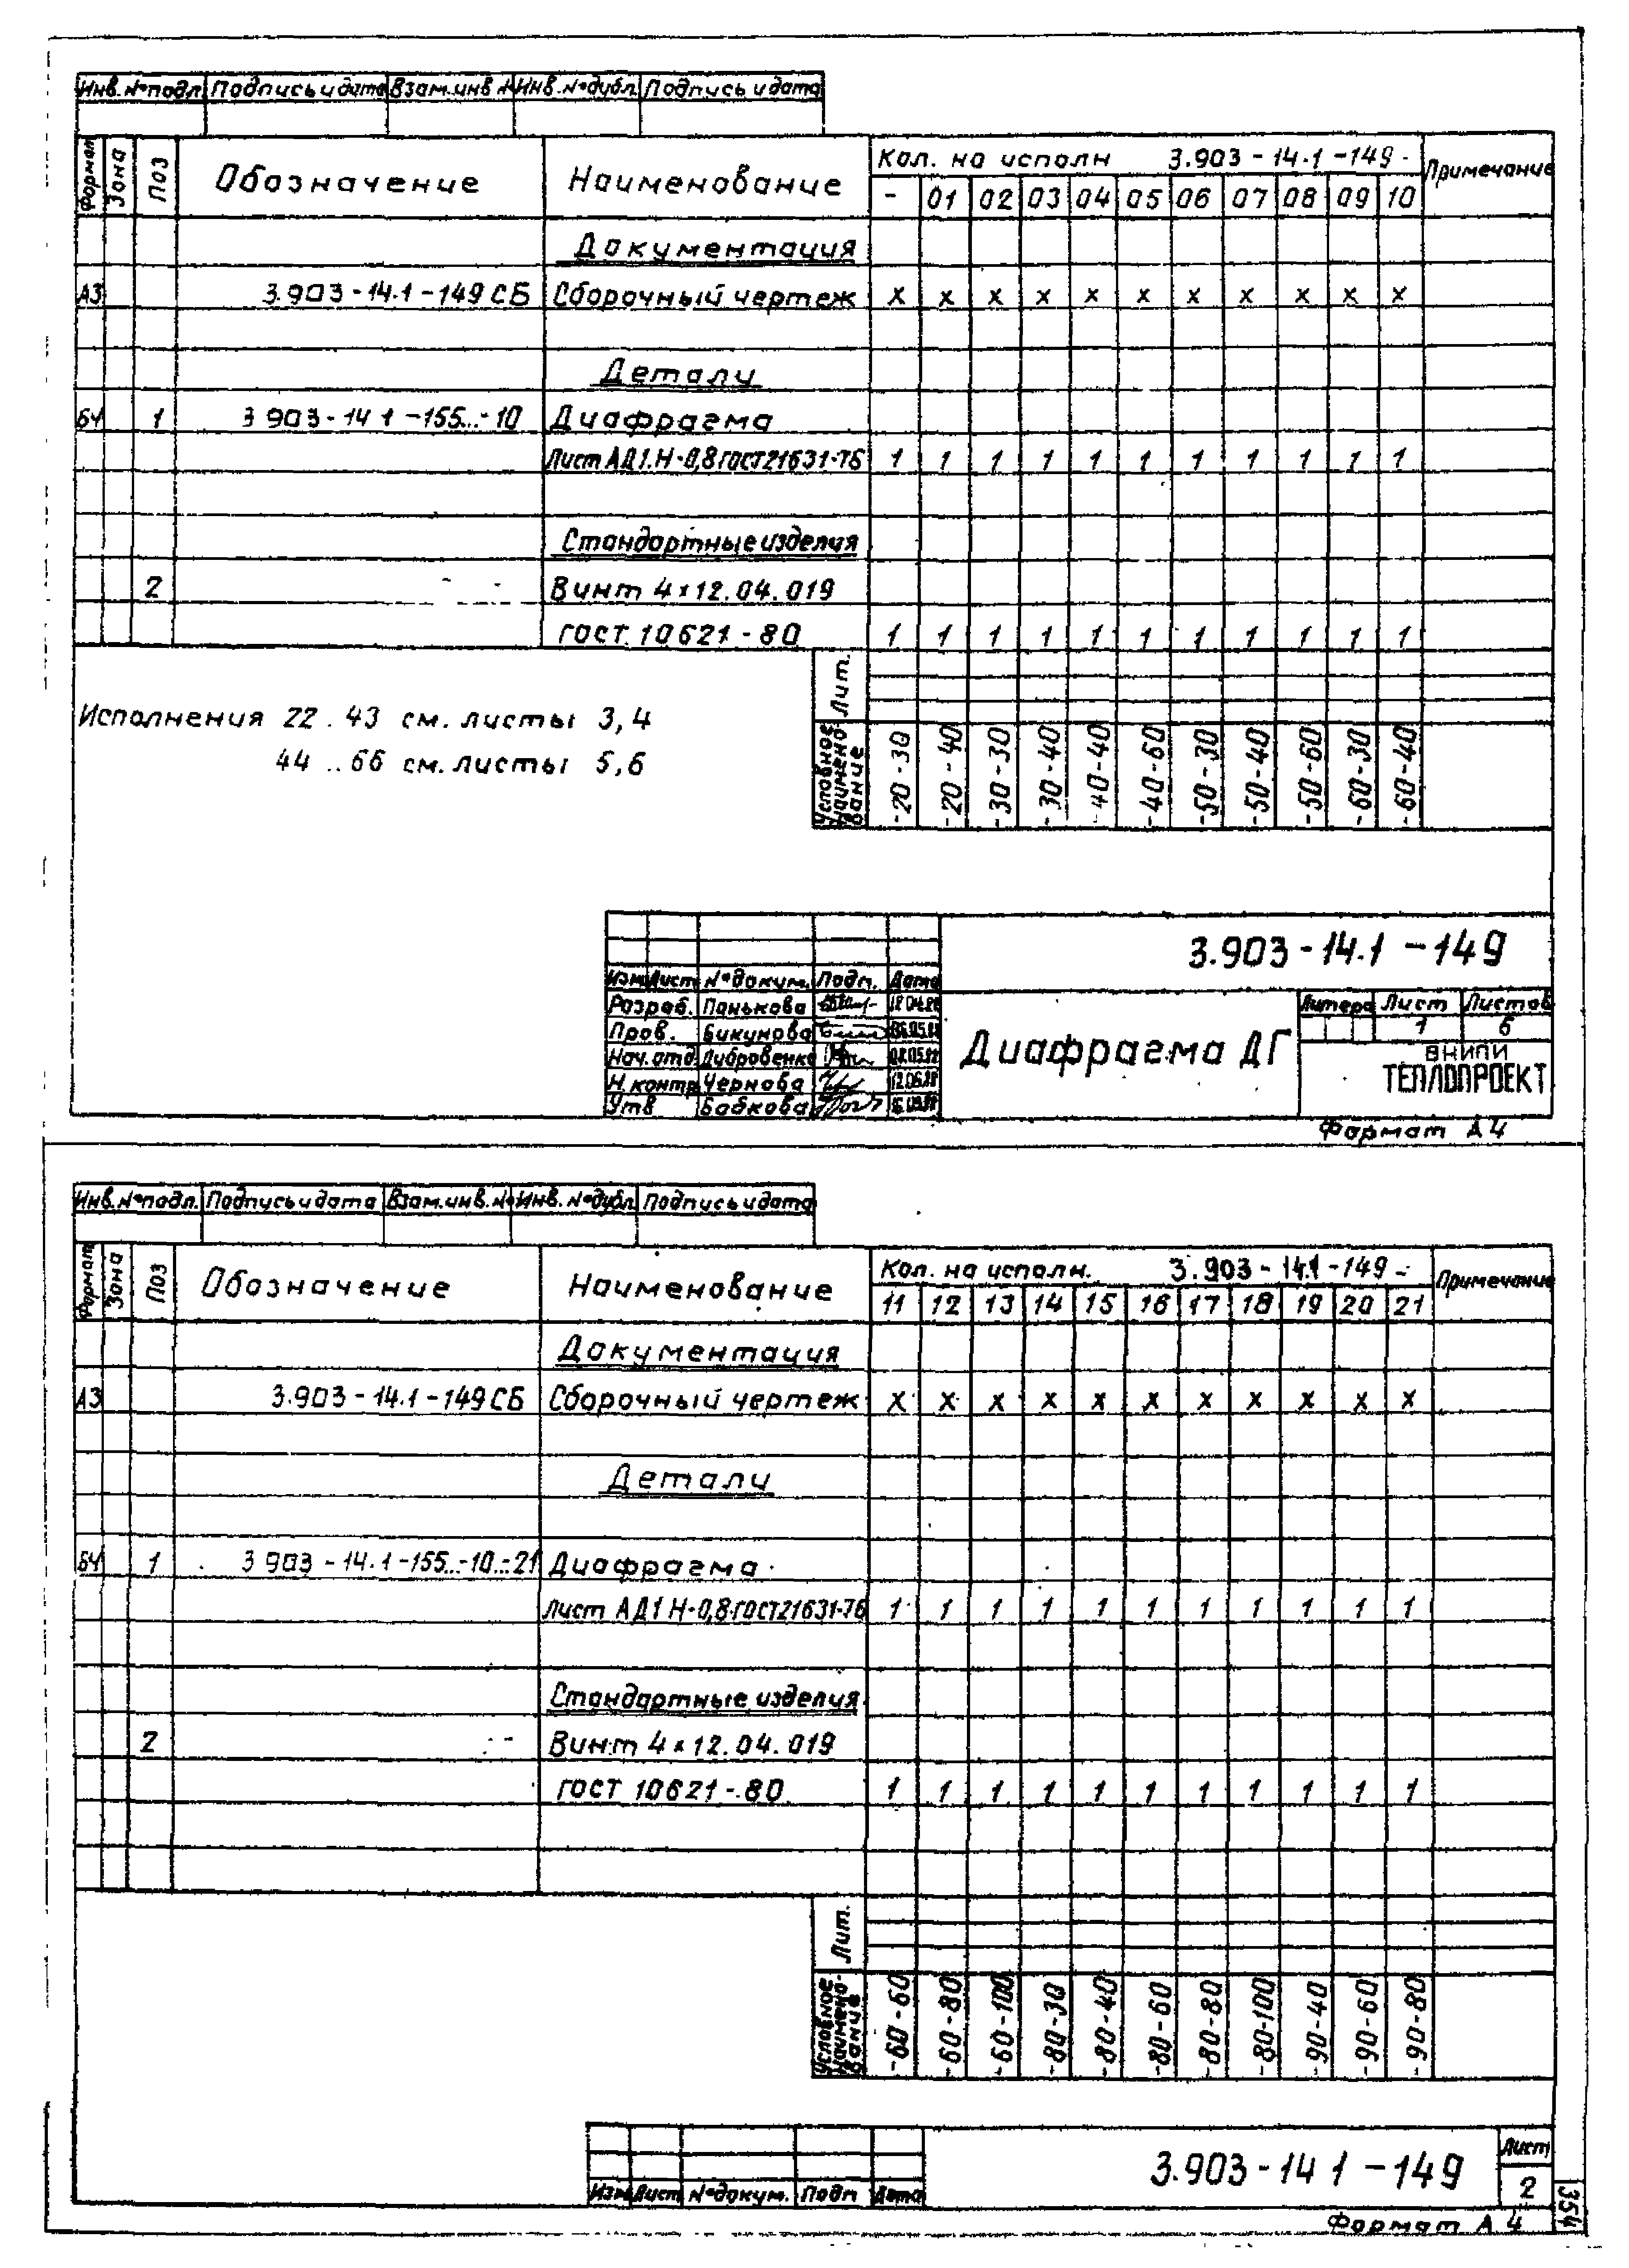 Инв. №подл. Подпись и дата Взам.инв № Инв. №дубл. Подпись и дата
Формат Зона Поз Обозначение Наименование Кол. на исполн 3.903-14.1-149- Примечание
- 01 02 03 04 05 06 07 08 09 10
Документация
А3 3.903-14.1-149 СБ Сборочный чертеж х х х х х х х х х х х
Детали
БЧ 1 3 903-14 1-155...-10 Диафрагма
Лист АД1.Н-0,8 ГОСТ 21631-76 1 1 1 1 1 1 1 1 1 1 1
Стандартные изделия
2 Винт 4×12.04.019
ГОСТ 10621-80 1 1 1 1 1 1 1 1 1 1 1
Лит.
Исполнения 22 . 43 см. листы 3,4
44 .. 66 см. листы 5,6
Условное наименование -20-30 -20-40 -30-30 -30-40 -40-40 -40-60 -50-30 -50-40 -50-60 -60-30 -60-40
3.903-14.1-149
Изм Лист №докум. Подп. Дата
Разраб. Панькова
Пров. Бикунова
Нач. отд Дибровенко
Н.контр Чернова
Утв Бабкова
Диафрагма ДГ
Литера Лист Листов
1 6
ВНИПИ
ТЕПЛОПРОЕКТ
Формат А4
Инв. №подл. Подпись и дата Взам.инв.№ Инв. №дубл. Подпись и дата
Формат Зона Поз Обозначение Наименование Кол. на исполн. 3.903-14.1-149- Примечание
11 12 13 14 15 16 17 18 19 20 21
Документация
А3 3.903-14.1-149 СБ Сборочный чертеж х х х х х х х х х х х
Детали
БЧ 1 3 903-14.1-155...-10...-21 Диафрагма
Лист АД1 Н-0,8 ГОСТ 21631-76 1 1 1 1 1 1 1 1 1 1 1
Стандартные изделия
2 Винт 4×12.04.019
ГОСТ 10621-80 1 1 1 1 1 1 1 1 1 1 1
Лит.
Условное наименование -60-60 -60-80 -60-100 -80-30 -80-40 -80-60 -80-80 -80-100 -90-40 -90-60 -90-80
Изм Лист №докум. Подп Дата
3.903-14 1-149
Лист
2
Формат А4
354